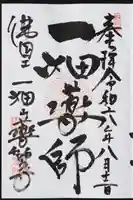 奉拝令和六年八月
一畑薬師
一畑山薬師寺